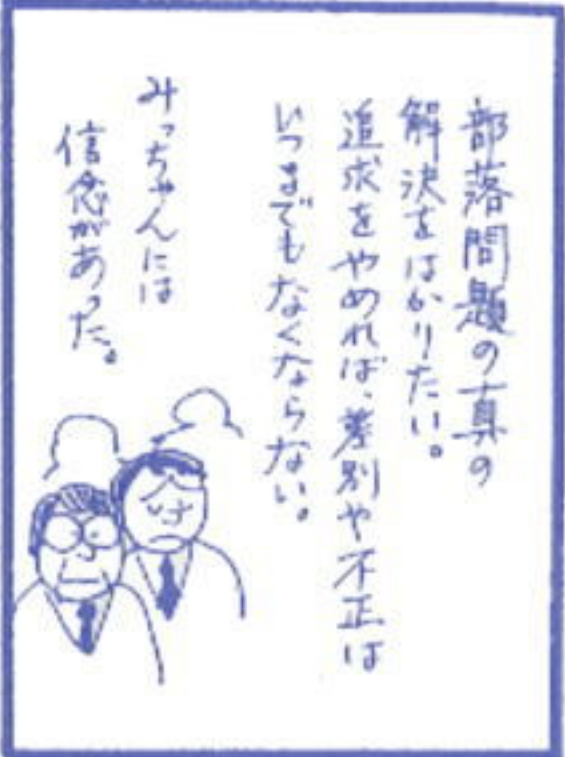 部落問題の真の
解決をはかりたい。
追求をやめれば、差別や不正は
いつまでもなくならない。
みっちゃんには
信念があった。